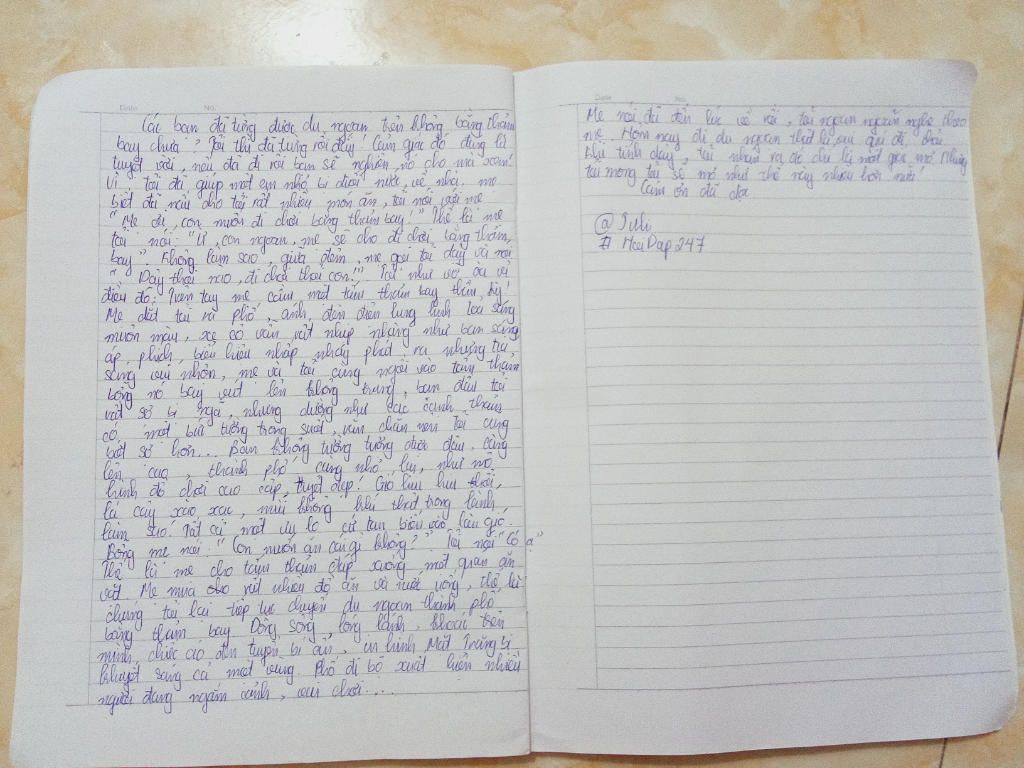 Date No.
Các bạn đã từng được du ngoạn trên không bằng thảm
bay chưa? Tôi thì đã từng rồi đấy! Cảm giác đó đúng là
tuyệt vời, nếu đã đi rồi bạn sẽ nghiện nó cho mà xem!
Vì tôi đã giúp một em nhỏ bị đuối nước, về nhà, mẹ
biết đã nấu cho tôi rất nhiều món ăn, tôi nói với mẹ
"Mẹ ơi, con muốn đi chơi bằng thảm bay!" Thế là mẹ
tôi nói: "Ừ, con ngoan, mẹ sẽ cho đi chơi bằng thảm
bay". Không làm sao, giữa đêm, mẹ gọi tôi dậy và nói
"Dậy thôi nào, đi chơi thôi con!". Tôi như vỡ òa vì
điều đó. Trên tay mẹ cầm một tấm thảm bay thần kỳ!
Mẹ dắt tôi ra phố, ánh đèn điện lung linh tỏa sáng
muôn màu, xe cộ vẫn vật nhịp nhàng như ban sáng
áp phích, biển hiệu nhấp nháy phát ra những tia
sáng vui nhộn, mẹ và tôi cùng ngồi vào tấm thảm
bỗng nó bay vút lên không trung, ban đầu tôi
rất sợ bị ngã, nhưng dường như các cạnh thảm
có một bức tường trong suốt, vẫn chắn nên tôi cũng
bớt sợ hơn... Bạn không tưởng tượng được đâu, càng
lên cao, thành phố càng nhỏ lại, như mô
hình đồ chơi cao cấp, tuyệt đẹp! Gió hiu hiu thổi,
lá cây xào xạc, mùi không khí thật trong lành
làm sao! Tất cả mọi ưu lo cứ tan biến vào làn gió.
Bỗng mẹ nói: "Con muốn ăn cái gì không?" Tôi nói "Có ạ"
Thế là mẹ cho tấm thảm đáp xuống một quán ăn
vặt. Mẹ mua cho rất nhiều đồ ăn và nước uống, thế là
chúng tôi lại tiếp tục chuyến du ngoạn thành phố
bằng thảm bay. Dòng sông lóng lánh, khoác trên
mình chiếc áo đen tuyền bí ẩn, in hình Mặt Trăng bị
khuyết sáng cả một vùng. Phố đi bộ xuất hiện nhiều
người đang ngắm cảnh, vui chơi....
Date No.
Mẹ nói đã đến lúc về rồi, tôi ngoan ngoãn nghe theo
mẹ. Hôm nay đi du ngoạn thật là vui quá đi,
khi tỉnh dậy, tôi nhận ra đó chỉ là một giấc mơ. Nhưng
tôi mong tôi sẽ mơ như thế này nhiều hơn nữa!
Cảm ơn đã đọc
@ Juli
# HoiDap247